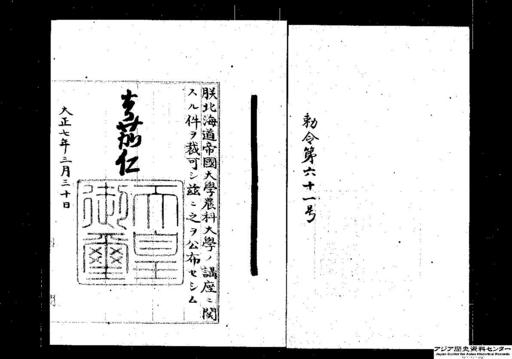 勅令第六十一号
朕北海道帝國大學農科大學ノ講座ニ関
スル件ヲ裁可シ茲ニ之ヲ公布セシム
嘉仁
天皇
御璽
大正七年三月三十日
アジア歴史資料センター
Japan Center for Asian Historical Records